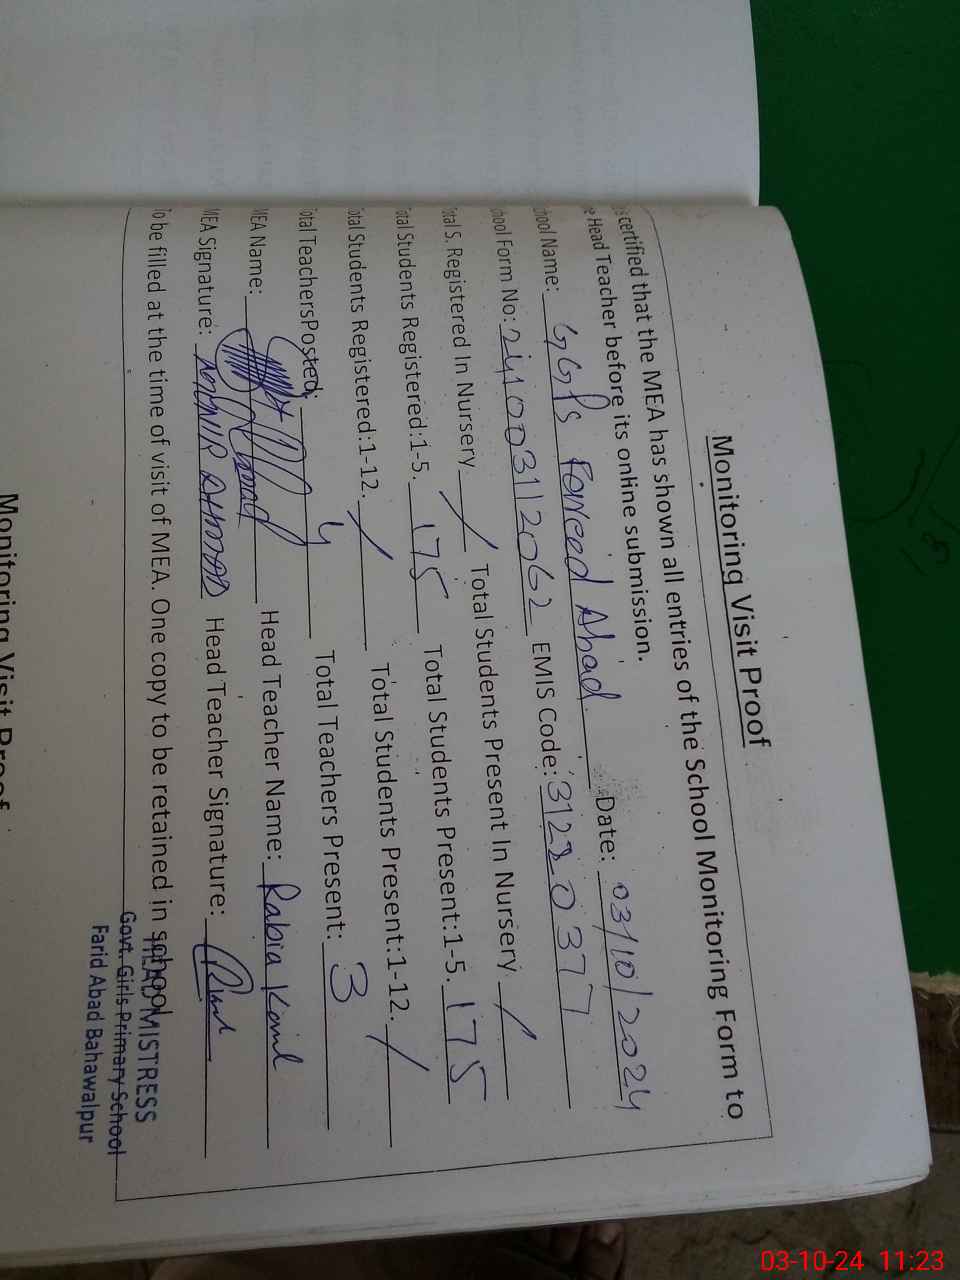 Monitoring Visit Proof
is certified that the MEA has shown all entries of the School Monitoring Form to
e Head Teacher before its online submission.
chool Name: GGPS Fareed Abad Date: 03/10/2024
chool Form No: 241003112062 EMIS Code: 31220377
tal S. Registered In Nursery / Total Students Present In Nursery /
otal Students Registered:1-5. 175 Total Students Present:1-5. 175
otal Students Registered:1-12. / Total Students Present:1-12. /
Total TeachersPosted: 4 Total Teachers Present: 3
MEA Name: Head Teacher Name: Rabia
MEA Signature: Head Teacher Signature:
To be filled at the time of visit of MEA. One copy to be retained in school
HEAD MISTRESS
Govt. Girls Primary School
Farid Abad Bahawalpur
Monitoring Visit Proof
03-10-24 11:23